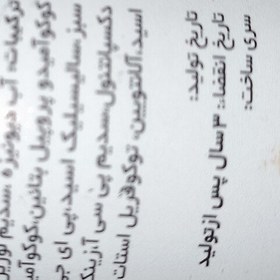 ترکیبات: آب دیونیزه، سدیم لوریل
کوکوآمیدو پروپیل بتائین، کوکوآمید
سبز، سالیسیلیک اسید، پی ای جی
دکسپانتنول، سدیم پی سی آ، زینک
اسید، آلانتویین، توکوفریل استات
تاریخ تولید:
تاریخ انقضاء: ۳ سال پس از تولید
سری ساخت: